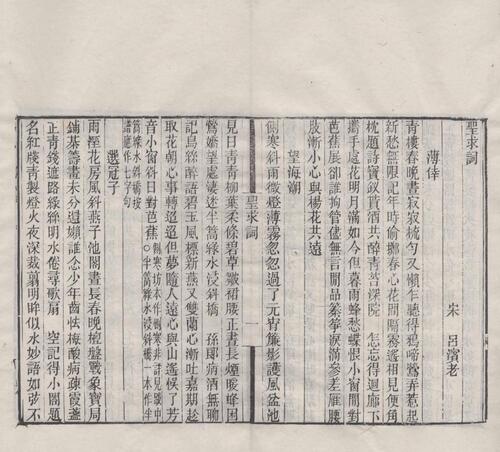 聖求詞
宋　呂濱老
薄倖
青樓春晚晝寂寂梳勻又嬾乍聽得鴉啼鶯弄惹起
新愁無限記年時偷擲春心花間隔霧遙相見便角
枕題詩寶釵貰酒共醉青苔深院　怎忘得迴廊下
攜手處花明月滿如今但暮雨蜂愁蝶恨小窗閒對
芭蕉展卻誰拘管儘無言閒品秦箏淚滿參差雁腰
肢漸小心與楊花共遠
望海潮
側寒斜雨微燈薄霧忽忽過了元宵簾影護風盆池
聖求詞
一
見日青青柳葉柔條碧草皺裙腰正晝長煙暖蜂困
鶯嬌望處淒迷半篙綠水浸斜橋　孫郎病酒無聊
記烏絲醉語碧玉風標新燕又雙蘭心漸吐嘉期趁
取花朝心事轉迢迢但夢隨人遠心與山遙悞了芳
音小窗斜日到芭蕉
側寒坊本作惻寒非詩見
○半篙綠水浸斜橋一本作半
篙綠水斜橋按
譜應作七字句
選冠子
雨溼花房風斜燕子池閣晝長春晚檀盤戰象寶局
鋪棊籌畫未分還嬾誰念少年齒怯梅酸病疎霞盞
正青錢遮路綠絲明水倦尋歌扇　空記得小閣題
名紅牋青製燈火夜深裁翦明眸似水妙語如弦不